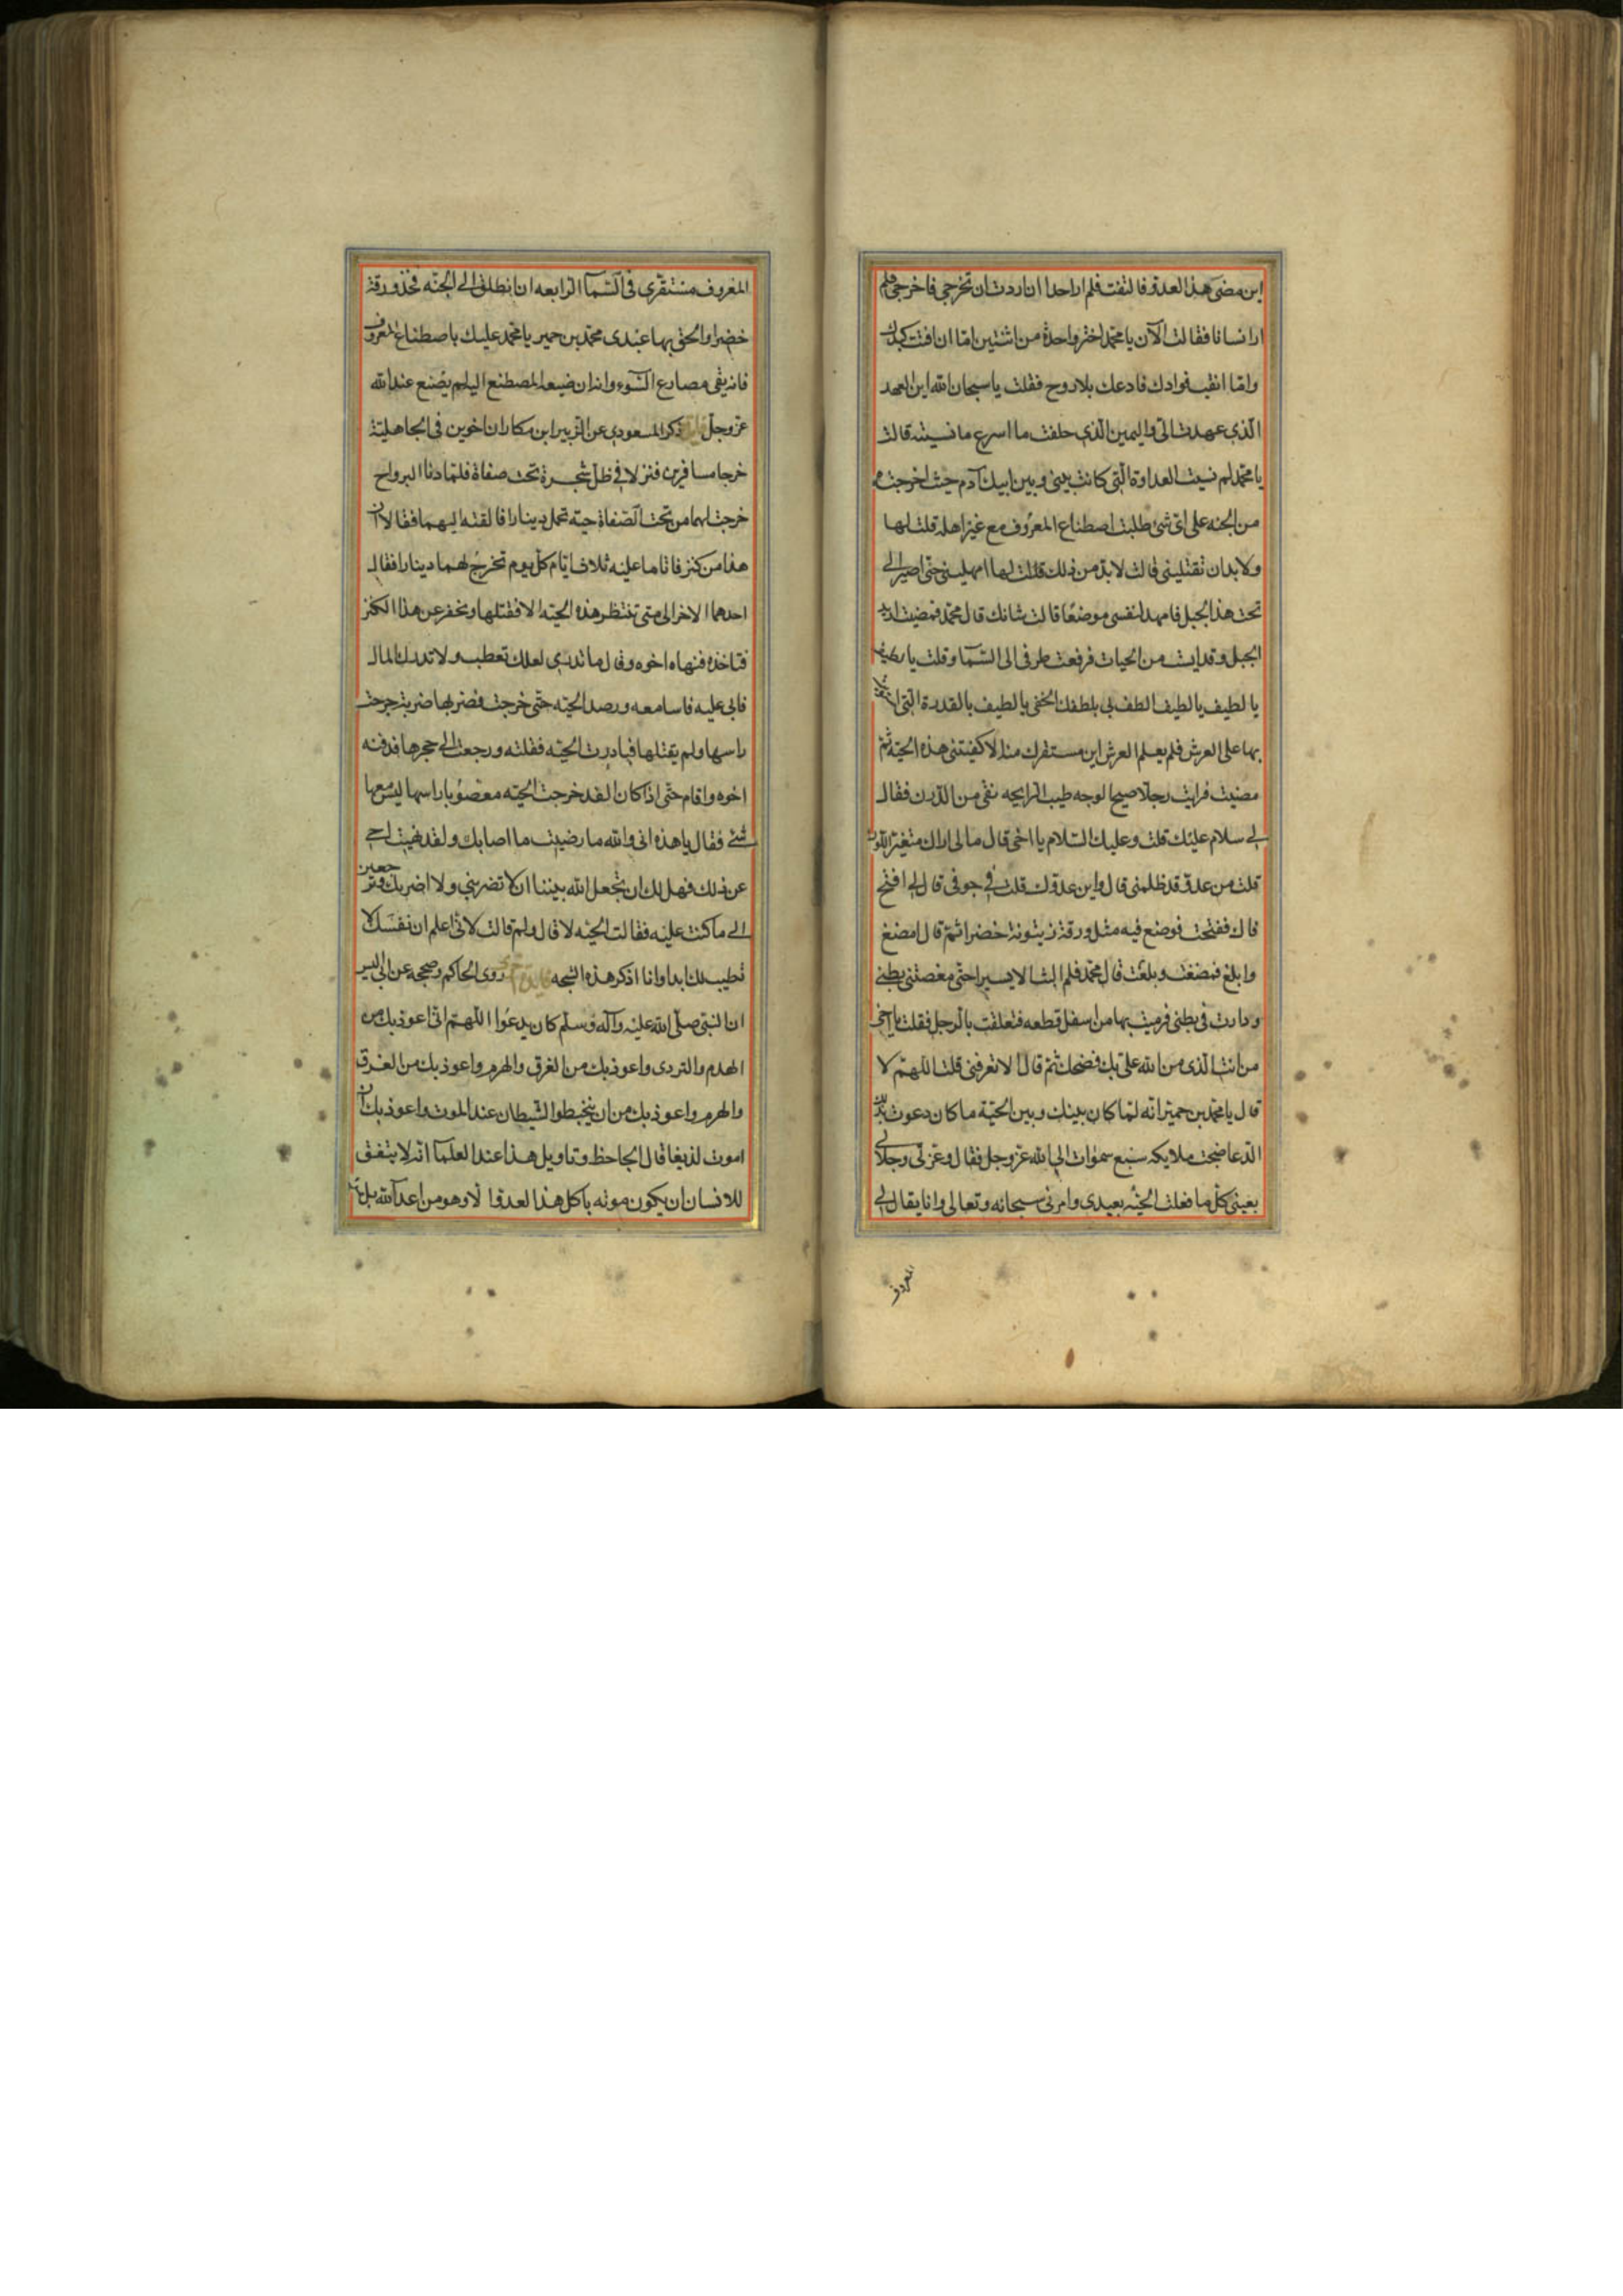 اين مضى هذا العدو فالتفت فلم ار احدا ان اردت ان تخرجى فاخرجى فلم
ار انسانا فقالت الآن يا محمد اختر واحدة من اثنتين اما ان افتت كبدك
واما انقب فوادك فادعك بلا روح فقلت يا سبحان الله اين العهد
الذى عهدت الىّ واليمين الذى حلفت ما اسرع ما نسيته قالت
يا محمد لم نسيت العداوة التى كانت بينى وبين ابيك آدم حيث اخرجته
من الجنه على اى شئ طلبت اصطناع المعروف مع غير اهله قلت لها
ولا بد ان تقتلينى قالت لا بد من ذلك قلت لها امهلينى حتى اصير الى
تحت هذا الجبل فامهد لنفسى موضعا قالت شانك قال محمد فمضيت اريد
الجبل وقد ايست من الحيات فرفعت طرفى الى السما وقلت يا لطيف
يا لطيف يا لطيف الطف بى بلطفك الخفى يا لطيف بالقدرة التى
بها على العرش فلم يعلم العرش اين مستقرك منه الا كفيتنى هذه الحيّة ثم
مضيت فرايت رجلا صبيح الوجه طيب الرايحه نقى من الدرن فقال
لى سلام عليك قلت وعليك السلام يا اخى قال ما لى اراك متغير اللون
قلت من عدو قد ظلمنى قال واين عدوك قلت فى جوفى قال لى افتح
فاك ففتحت فوضع فيه مثل ورقة زيتونة خضرا ثم قال امضغ
وابلع فمضغت وبلعت قال محمد فلم البث الا يسيرا حتى مغصتنى بطنى
ودارت فى بطنى فرميت بها من اسفل قطعه فتعلقت بالرجل فقلت يا اخى
من انت الذى من الله علىّ بك فضحك ثم قال الا تعرفنى قلت اللهم لا
قال يا محمد بن حمير انه لما كان بينك وبين الحيّة ما كان ودعوت بذلك
الدعا ضجت ملايكه سبع سموات الى الله عز وجل فقال وعزتى وجلالى
بعينى كل ما فعلت الحيّه بعبدى وامرنى سبحانه وتعالى وانا يقال لى
المعروف
المعروف مستقرى فى السما الرابعه ان انطلق الى الجنّه فخذ ورقة
خضرا والحق بها عبدى محمد بن حمير يا محمد عليك باصطناع المعروف
فانه يقى مصارع السّوء وانه ان ضيعه المصطنع اليه لم يضع عند الله
عز وجل ذكر المسعودى عن الزبير ابن بكار ان اخوين فى الجاهلية
خرجا مسافرين فنزلا فى ظل شجرة تحت صفاة فلما دنا البرواح
خرجت لهما من تحت الصفاة حيّه تحمل دينارا فالقته اليهما فقالا ان
هذا من كنز فاقاما عليه ثلاث ايام كل يوم تخرج لهما دينارا فقال
احدهما الاخر الى متى تنتظر هذه الحيّه الا نقتلها ونحفر عن هذا الكنز
فناخذه فنهاه اخوه وقال ما تدرى لعلك تعطب ولا تدرك المال
فابى عليه فاسا معه ورصد الحيّه حتى خرجت فضربها ضربة جرحت
راسها ولم يقتلها فبادرت الحيّه فقتلته ورجعت الى حجرها فدفنه
اخوه واقام حتى اذا كان الغد خرجت الحيّه معصوبا راسها ليس معها
شئ فقال يا هذه انى والله ما رضيت ما اصابك ولقد نهيت اخى
عن ذلك فهل لك ان نجعل الله بيننا ان لا تضرينى ولا اضربك وترجعين
الى ما كنت عليه فقالت الحيّه لا قال ولم قالت لانى اعلم ان نفسك لا
تطيب لك ابدا وانا اذكر هذه الشجه روى الحاكم وصححه عن ابى اليسر
ان النبى صلى الله عليه وآله وسلم كان يدعوا اللهم انى اعوذ بك من
الهدم والتردى واعوذ بك من الغرق والهرم واعوذ بك من الغرق
والهرم واعوذ بك من ان يتخبطوا الشيطان عند الموت واعوذ بك ان
اموت لذيغا قال الجاحظ وتاويل هذا عند العلما انه لا يتفق
للانسان ان يكون موته باكل هذا العدو الا وهو من اعدآ الله بل